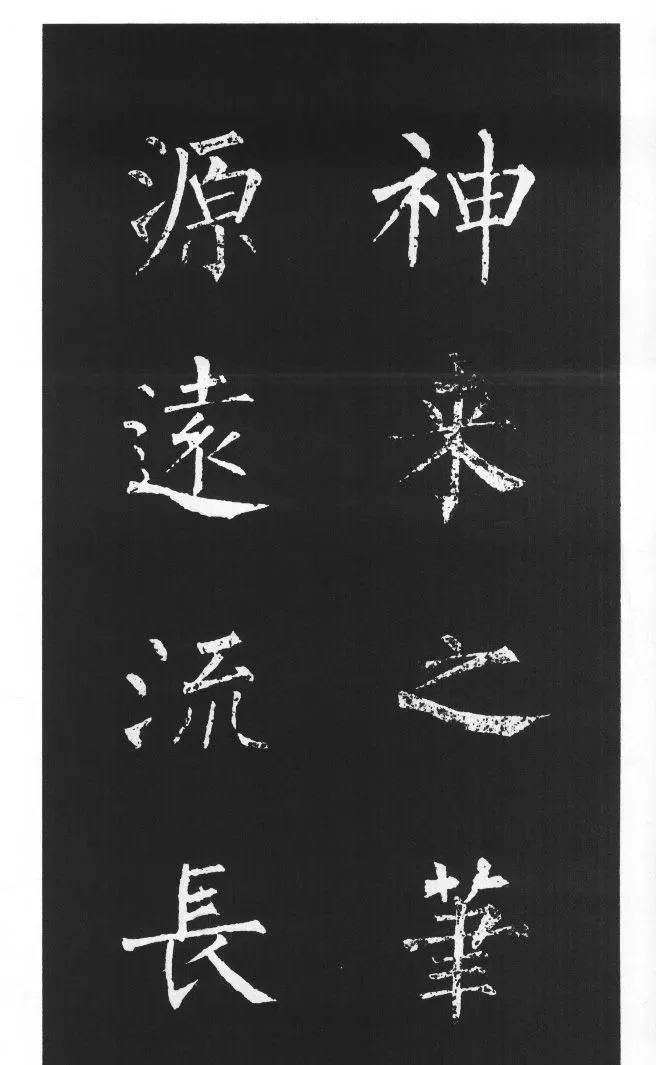 神来之筆
源遠流長